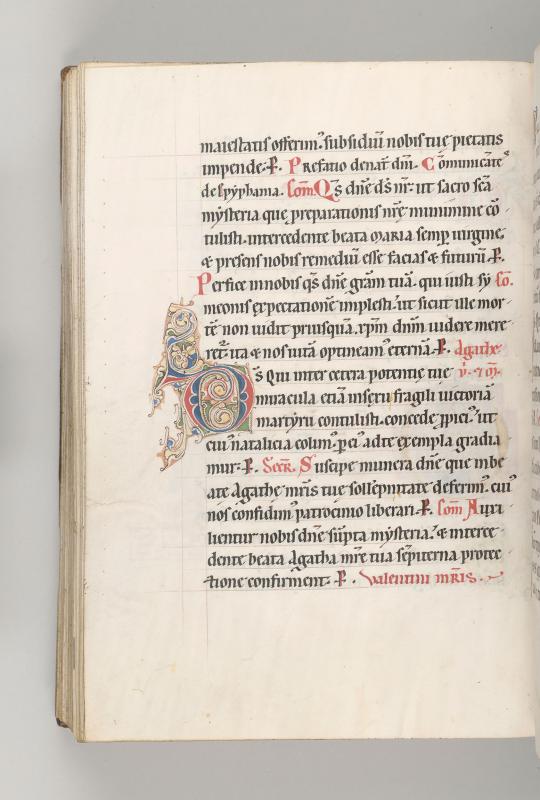 maiestatis offerim᷒. subsidiū nobis tue pietatis
impende. P. Prefatio denat̄ dn̄i. Cōmunicāte᷒
de Epyphania. Com̄. Qs̄ dn̄e ds̄ nr̄. ut sacro scā
mysteria que preparationis nr̄e munimine cō
tulisti. intercedente beata maria semp̄ uirgine.
& presens nobis remediū esse facias & futurū. P.
Perfice in nobis qs̄ dn̄e grām tuā. qui iusti sy Co.
meonis expectationē implesti. ut sicut ille mor
tē non uidit priusquā xp̄m dnīm uidere mere
ret᷒. ita & nos uitā optineam᷒ eternā. P. Agathe
Ds̄ Qui inter cetera potentie tue v̄. & m̄.
miracula etiā in sexu fragili uictoriā
martyrii contulisti. concede ppici᷒. ut
cui᷒ natalicia colim᷒. p ei᷒ ad te exempla gradia
mur. P. Secr̄. Suscipe munera dn̄e que in be
ate Agathe mr̄is tue sollēpnitate deferim᷒. cui᷒
nos confidim᷒ patrocinio liberari. P. Com̄ Auxi
lientur nobis dn̄e sūpta mysteria. & interce
dente beata Agatha mr̄e tua sēpiterna protec
tione confirment. P. Valentini mr̄is.